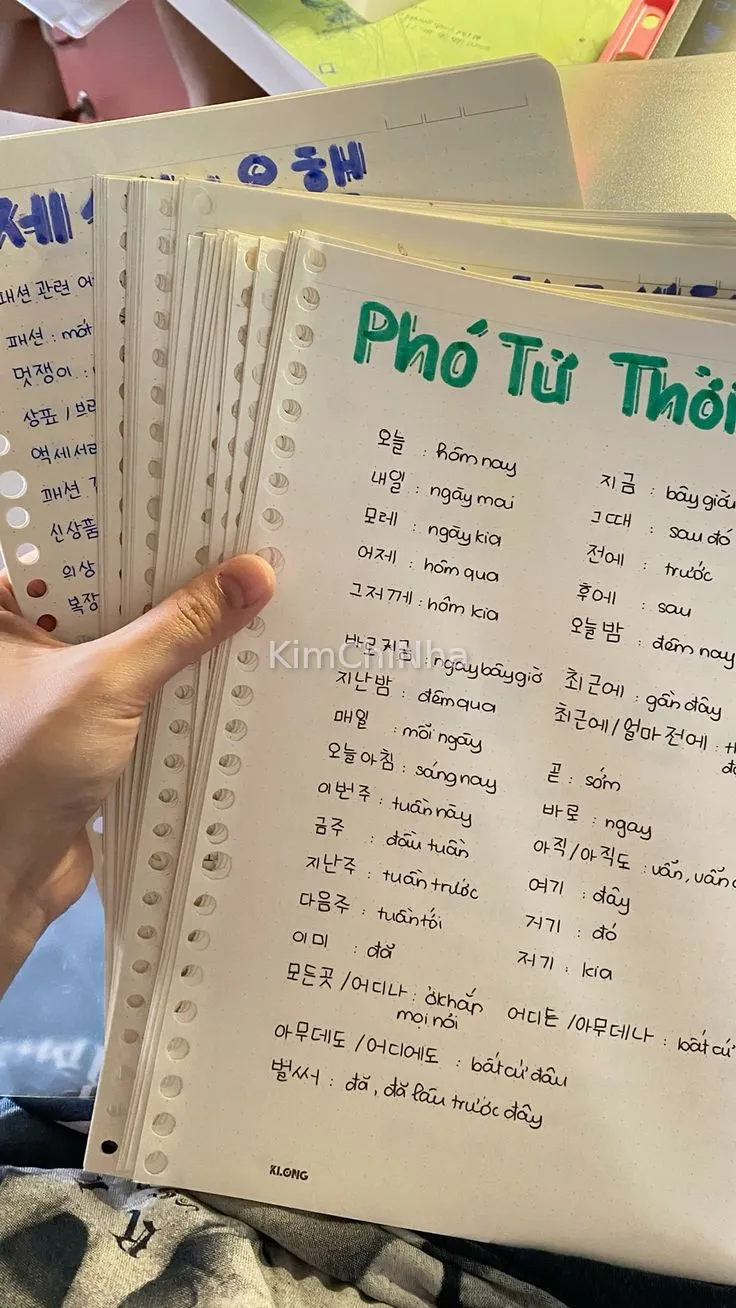 유행
패션 관련 어
패션 : mốt
멋쟁이 :
상표 / 브랜
액세서리
패션
신상품
의상
복장
Phó Từ Thời
오늘 : hôm nay
내일 : ngày mai
모레 : ngày kia
어제 : hôm qua
그저께 : hôm kia
바로 지금 : ngay bây giờ
지난밤 : đêm qua
매일 : mỗi ngày
오늘 아침 : sáng nay
이번주 : tuần này
금주 : đầu tuần
지난주 : tuần trước
다음주 : tuần tới
이미 : đã
지금 : bây giờ
그때 : sau đó
전에 : trước
후에 : sau
오늘 밤 : đêm nay
최근에 : gần đây
최근에 / 얼마 전에 :
곧 : sớm
바로 : ngay
아직 / 아직도 : vẫn, vẫn
여기 : đây
거기 : đó
저기 : kia
모든곳 / 어디나 : ở khắp
mọi nơi
어디든 / 아무데나 : bất cứ
아무데도 / 어디에도 : bất cứ đâu
벌써 : đã, đã lâu trước đây
KLONG
KimChiNha